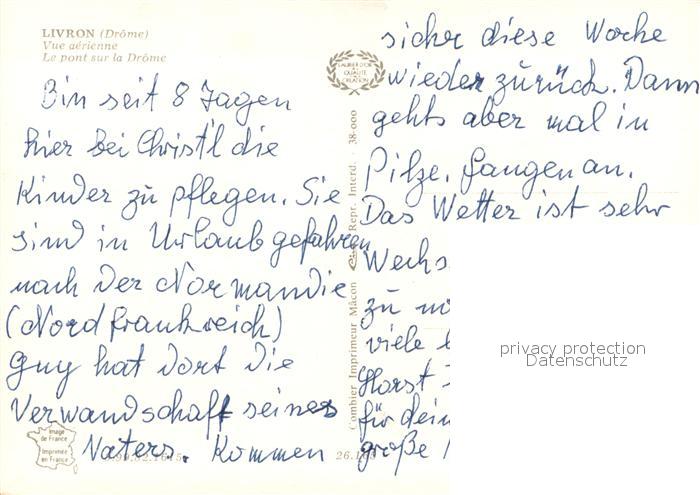 LIVRON (Drôme)
Vue aérienne
Le pont sur la Drôme
Bin seit 8 Tagen
hier bei Christ'l die
Kinder zu pflegen. Sie
sind in Urlaub gefahren
nach der Normandie
(Nordfrankreich)
Guy hat dort die
Verwandschaft seines
Vaters. Kommen
Image
de France
Imprimée
en France
LAURIER D'OR
QUALITÉ
CRÉATION
Combier Imprimeur Mâcon
Repr. Interd. 38-000
sicher diese Woche
wieder zurück. Dann
gehts aber mal in
Pilze. fangen an.
Das Wetter ist sehr
Wechs
zu
viele
Horst
für dein
große
privacy protection
Datenschutz